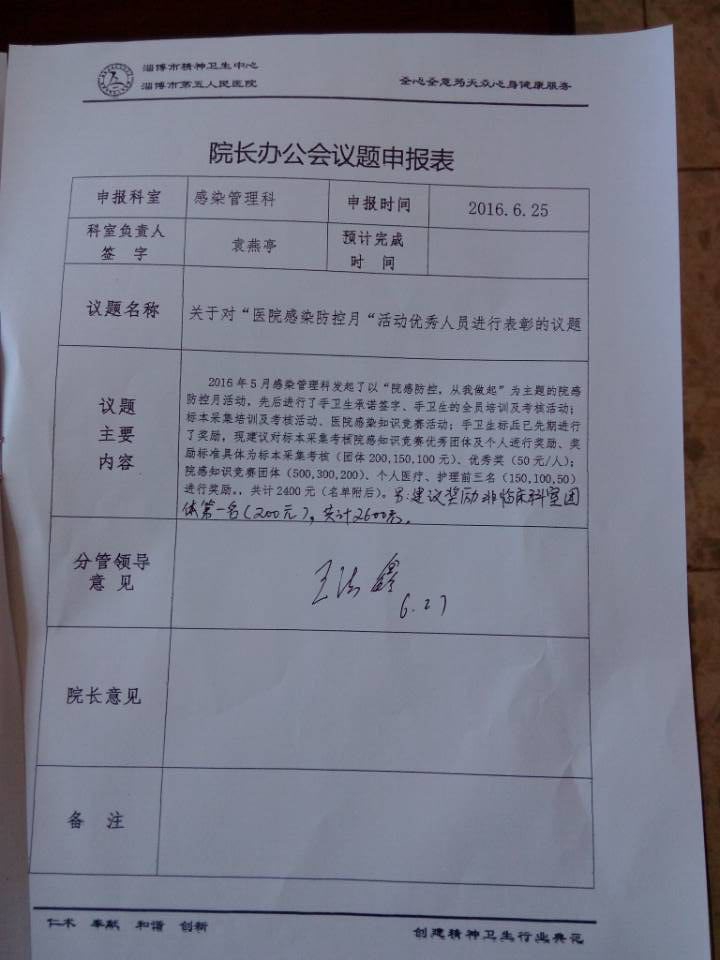 淄博市精神卫生中心
淄博市第五人民医院
全心全意为大众心身健康服务
院长办公会议题申报表
申报科室 感染管理科 申报时间 2016.6.25
科室负责人签字 袁燕亭 预计完成时间
议题名称 关于对“医院感染防控月“活动优秀人员进行表彰的议题
议题主要内容
2016年5月感染管理科发起了以“院感防控，从我做起”为主题的院感
防控月活动，先后进行了手卫生承诺签字、手卫生的全员培训及考核活动；
标本采集培训及考核活动、医院感染知识竞赛活动；手卫生标兵已先期进行
了奖励，现建议对标本采集考核院感知识竞赛优秀团体及个人进行奖励、奖
励标准具体为标本采集考核（团体200,150,100元）、优秀奖（50元/人）；
院感知识竞赛团体（500,300,200）、个人医疗、护理前三名（150,100,50）
进行奖励。，共计2400元（名单附后）。另：建议奖励非临床科室团
体第一名（200元），共计2600元。
分管领导意见
6.27
院长意见
备 注
仁术 奉献 和谐 创新
创建精神卫生行业典范